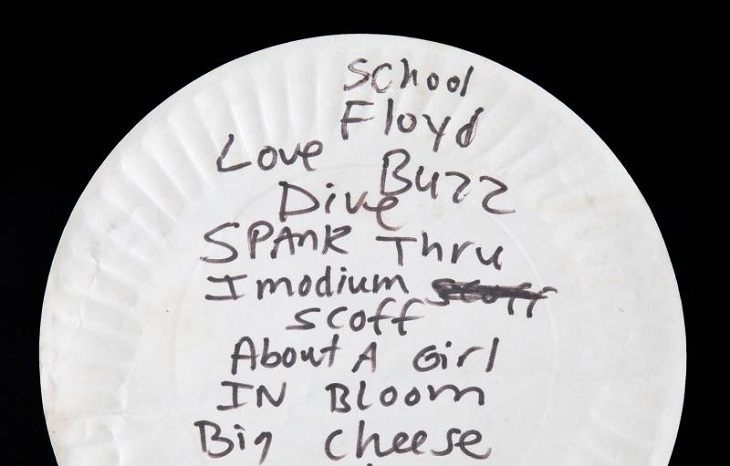 School
Floyd
Love Buzz
Dive
SPAnk Thru
Imodium scoff
scoff
About A Girl
IN Bloom
Big Cheese